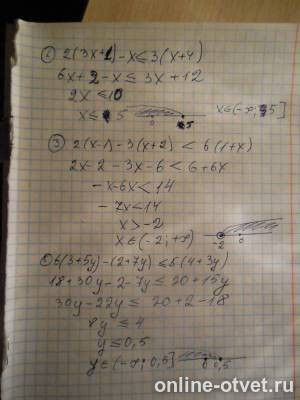 ② 2(3x+1)-x≤3(x+4)
6x+2-x≤3x+12
2x≤10
x≤5 0 5 x∈(-∞;5]
③ 2(x-1)-3(x+2)<6(1+x)
2x-2-3x-6<6+6x
-x-6x<14
-7x<14
x>-2
x∈(-2;+∞) -2 0
6(3+5y)-(2+7y)≤5(4+3y)
18+30y-2-7y≤20+15y
30y-22y≤20+2-18
8y≤4
y≤0,5
y∈(-∞;0,5] 0 0,5
online-otvet.ru